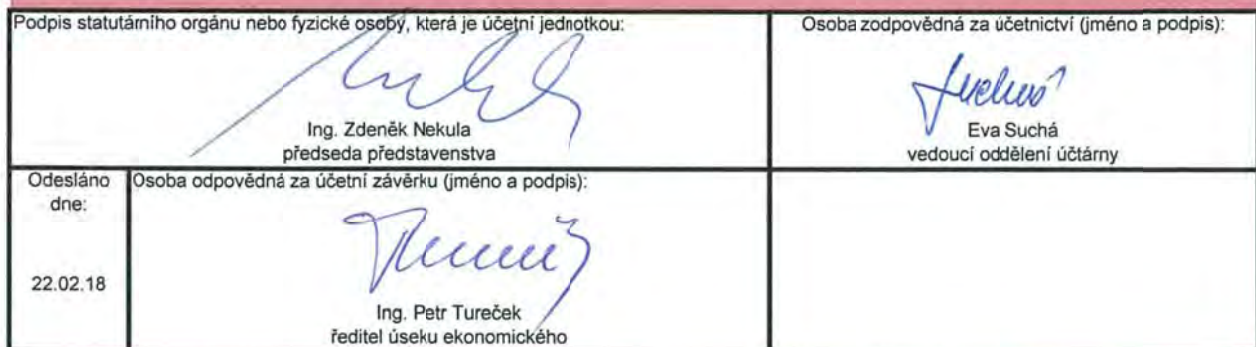 Podpis statutárního orgánu nebo fyzické osoby, která je účetní jednotkou:
Ing. Zdeněk Nekula
předseda představenstva
Osoba zodpovědná za účetnictví (jméno a podpis):
Suchá
Eva Suchá
vedoucí oddělení účtárny
Odesláno
dne:
22.02.18
Osoba odpovědná za účetní závěrku (jméno a podpis):
Ing. Petr Tureček
ředitel úseku ekonomického